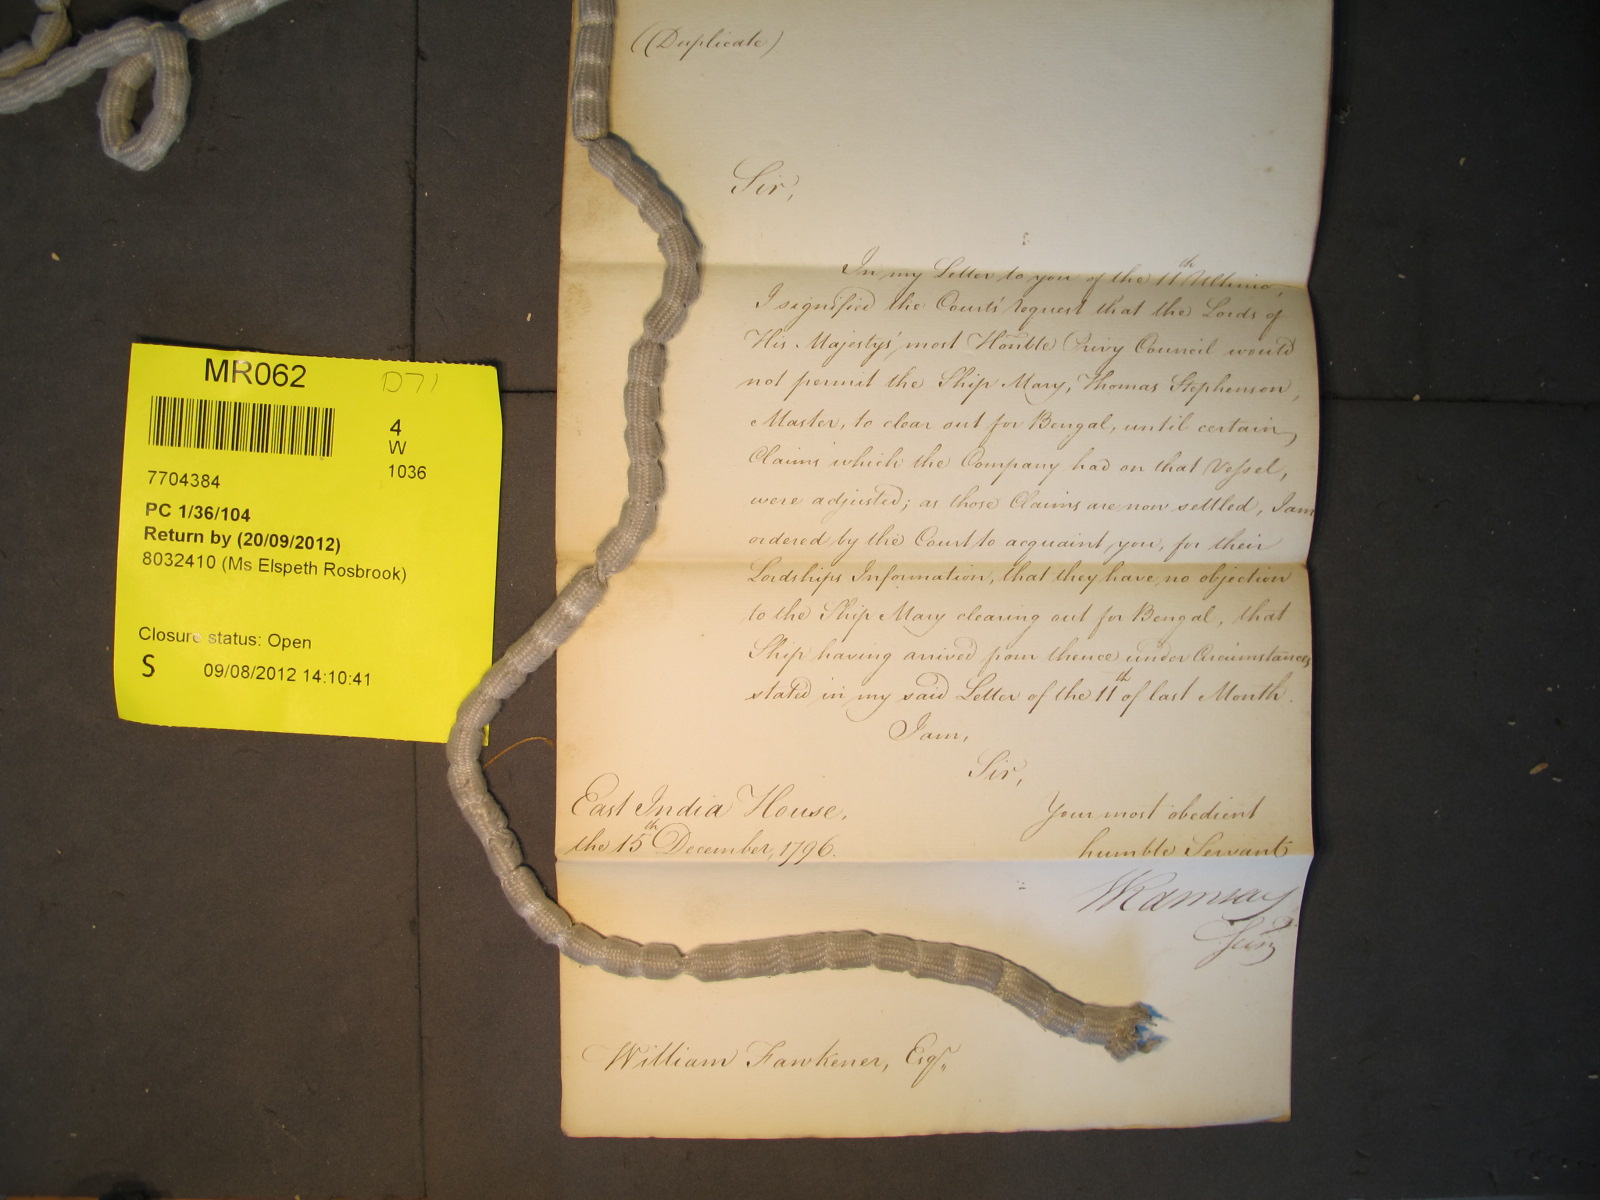 MR062
D71
4
W
1036
7704384
PC 1/36/104
Return by (20/09/2012)
8032410 (Ms Elspeth Rosbrook)
Closure status: Open
S 09/08/2012 14:10:41
(Duplicate)
Sir,
In my Letter to you of the 11th Ultimo,
I signified the Courts' request that the Lords of
His Majesty's most Honble Privy Council would
not permit the Ship Mary, Thomas Stephenson,
Master, to clear out for Bengal, until certain
Claims which the Company had on that Vessel,
were adjusted; as those Claims are now settled, I am
ordered by the Court to acquaint you, for their
Lordships Information, that they have no objection
to the Ship Mary clearing out for Bengal, that
Ship having arrived from thence under Circumstances
stated in my said Letter of the 11th of last Month.
I am,
Sir,
Your most obedient
humble Servant
East India House,
the 15th December, 1796.
WRamsay
Secry
William Fawkener, Esqr.